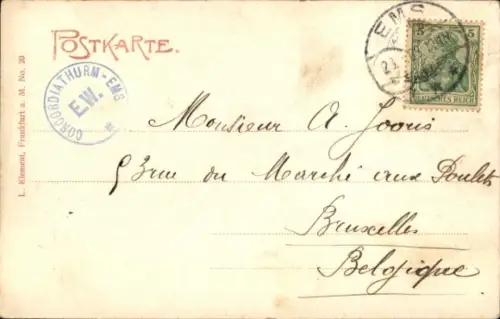 POSTKARTE.
CONCORDIATHURM - EMS
E.W.
EMS
5 5
DEUTSCHES REICH
L. Klement, Frankfurt a. M. No. 20
Monsieur A. Jooris
53 rue du Marché aux Poulets
Bruxelles
Belgique